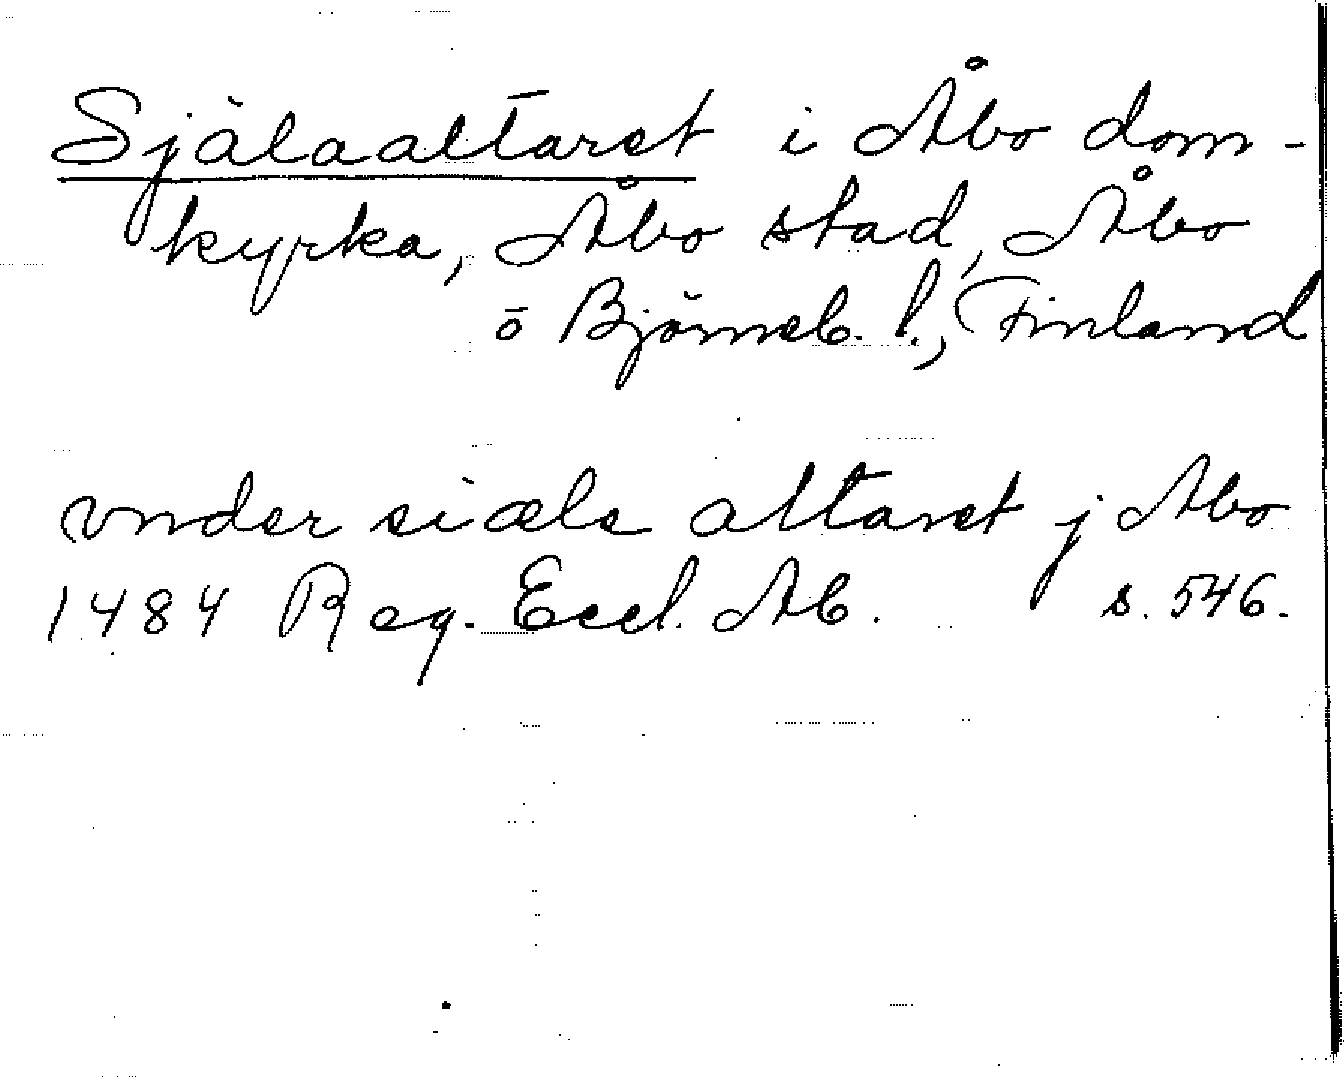 Själaaltaret i Åbo dom-
kyrka, Åbo stad, Åbo
o Björneb. l., Finland
vnder siæle altaret j Abo
1484 Reg. Eccl. Ab. s. 546.